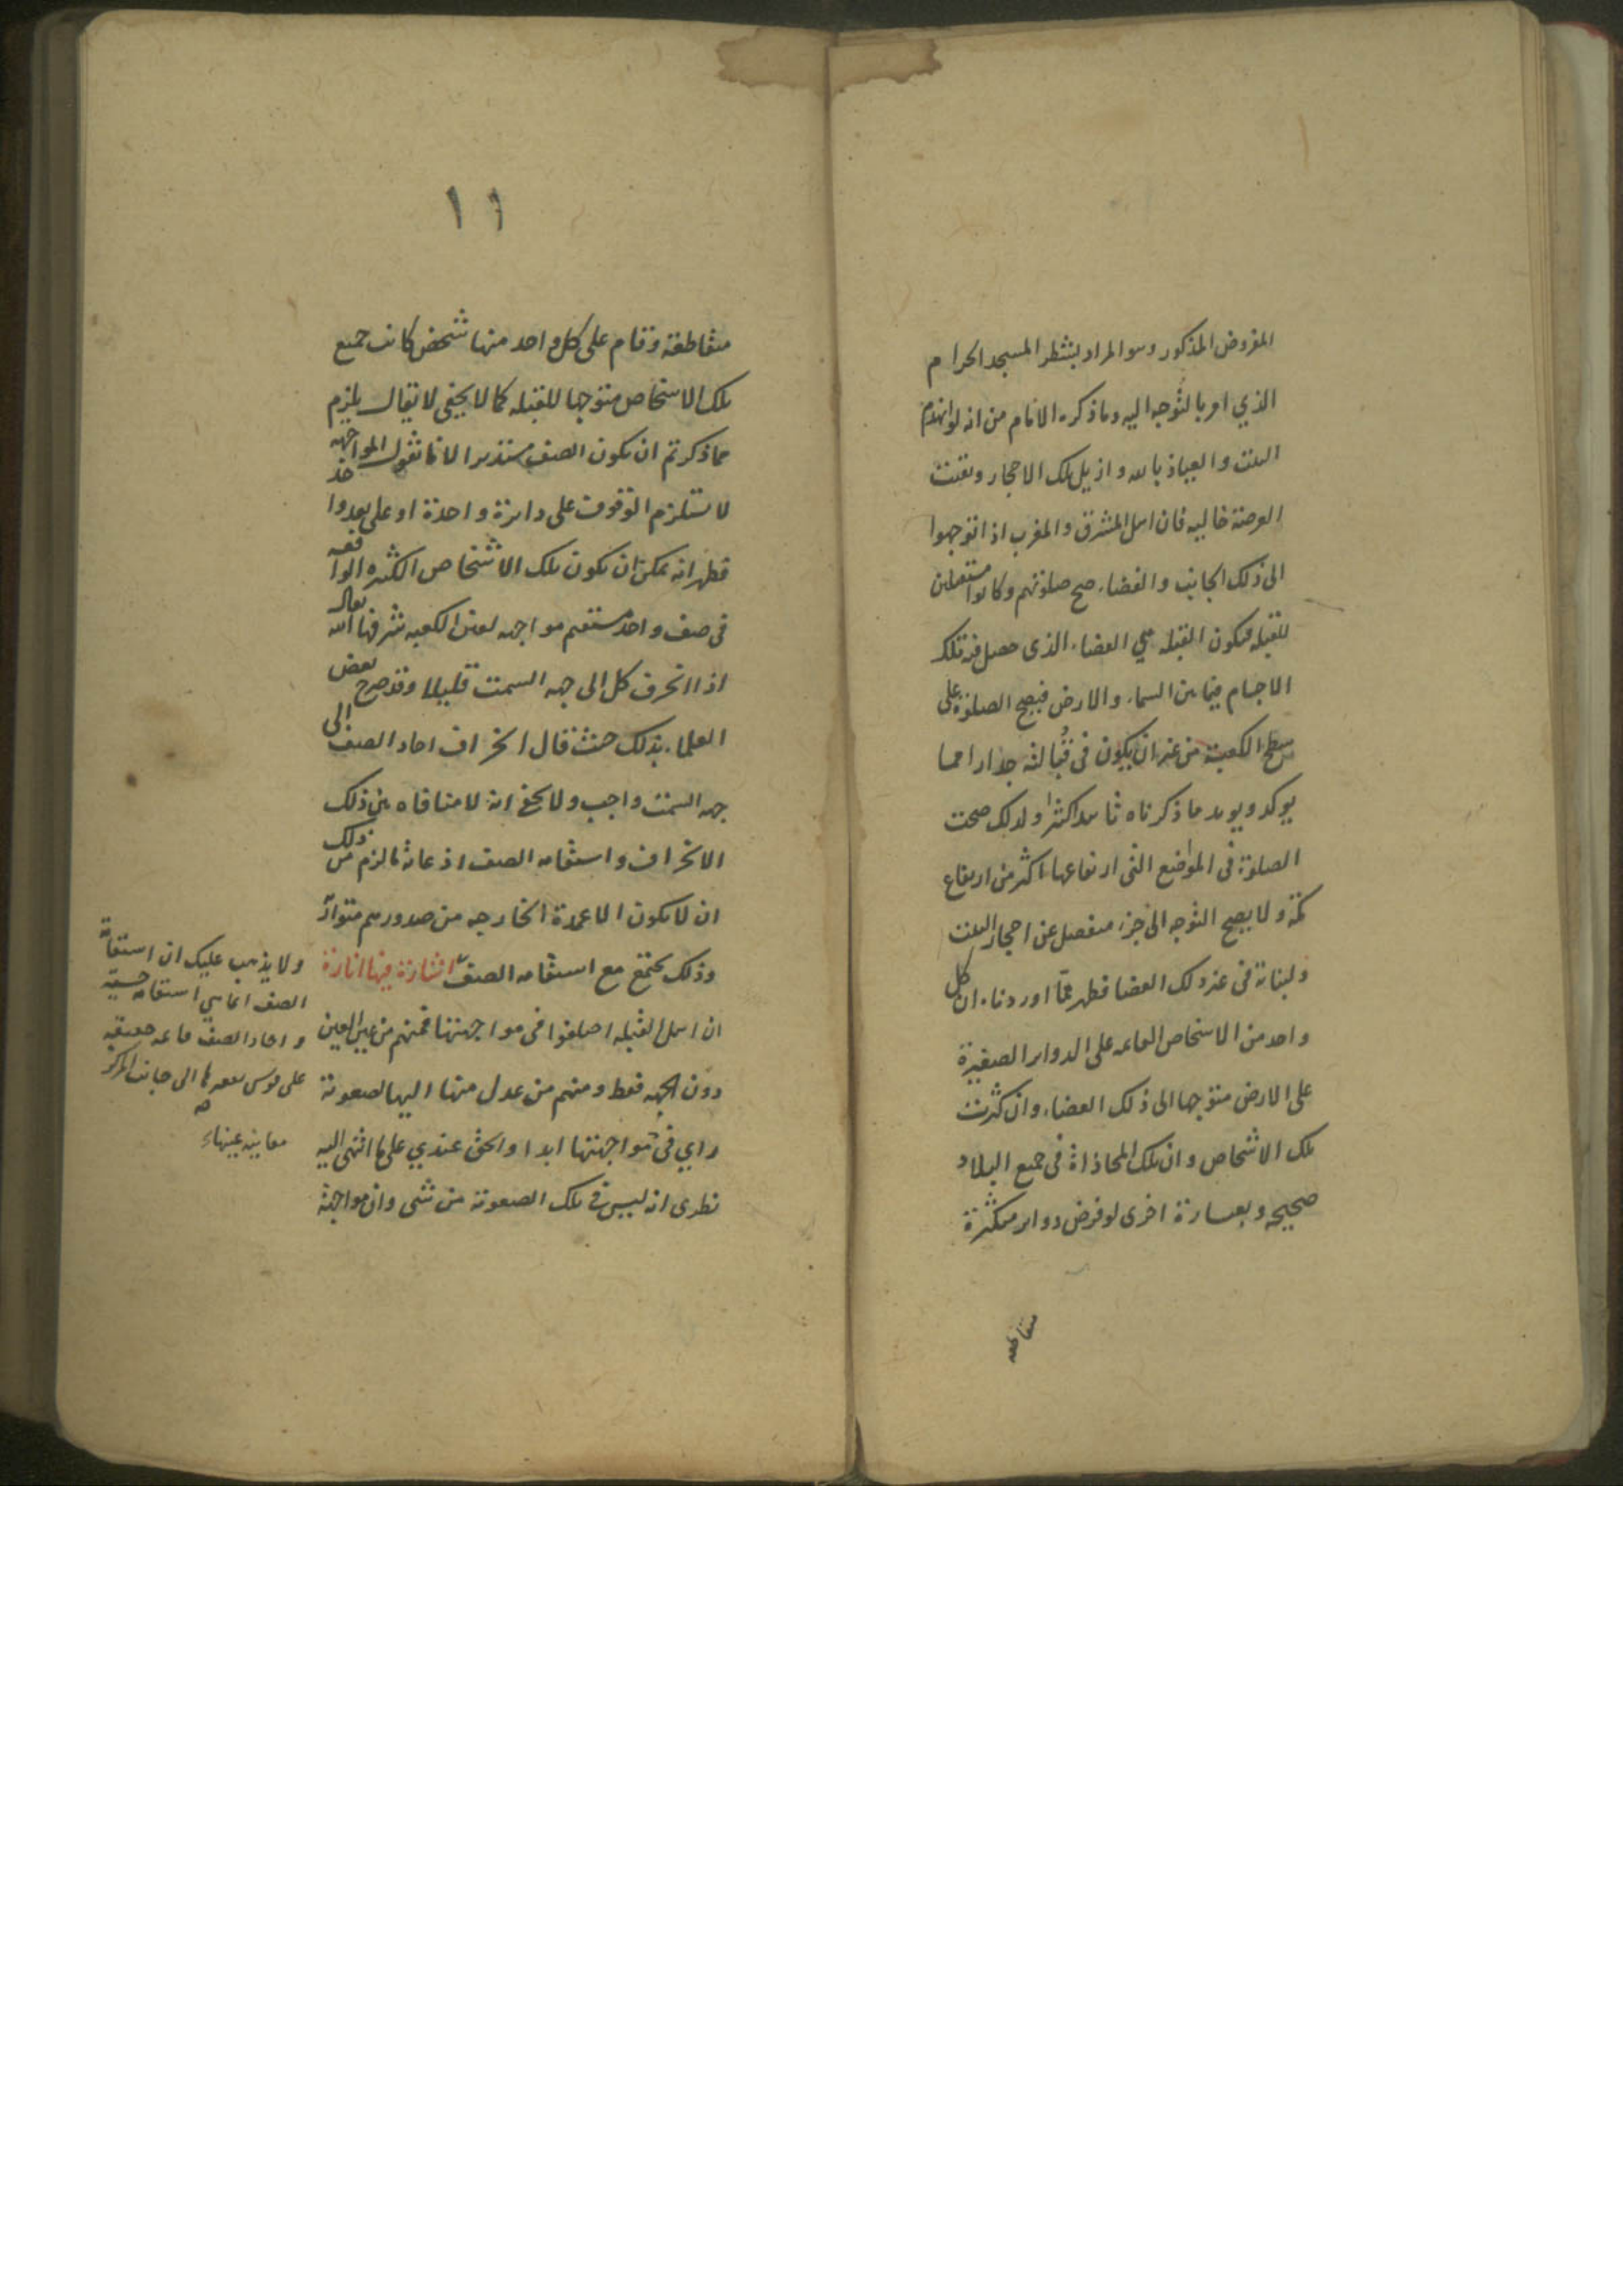 المفروض المذكور وهو المراد بشطر المسجد الحرام
الذي امر بالتوجه اليه وما ذكره الامام من انه لو انهدم
البيت والعياذ بالله وازيل تلك الاحجار وبقيت
العرصة خاليه فان اهل المشرق والمغرب اذا توجهوا
الى ذلك الجانب والفضاء صح صلوتهم وكانوا مستقبلين
للقبله فيكون القبله هي الفضاء الذي حصل فيه تلك
الاجسام فيما بين السماء والارض فيصح الصلوة على
سطح الكعبة من غير ان يكون في قبالته جدار احيا
يوكد ويويد ما ذكرناه تاييدا كثيرا ولذلك صحت
الصلوة في المواضع التي ارتفاعها اكثر من ارتفاع
مكة ولا يصح التوجه الى جزء منفصل عن احجار البيت
ولبناته في غير ذلك الفضا فظهر عما اوردناه ان كل
واحد من الاشخاص القايمه على الدواير الصغيرة
على الارض متوجها الى ذلك الفضاء وان كثرت
تلك الاشخاص وان تلك المحاذاة في جميع البلاد
صحيحه وبعبارة اخرى لو فرض دواير متكثرة
متقاطعه
١١
متقاطعة وقام على كل واحد منها شخص كانت جميع
تلك الاشخاص متوجها للقبله كما لا يخفى لا يقال يلزم
مما ذكرتم ان يكون الصف مستديرا لانا نقول المواجهه
لا يستلزم الوقوف على دايرة واحدة او على بعد واحد
فظهر انه يمكن ان يكون تلك الاشخاص الكثيره الواقعه
في صف واحد مستقيم مواجهه لعين الكعبه شرفها الله تعالى
اذا انحرف كل الى جهه السمت قليلا وقد صرح بعض
العلماء بذلك حيث قال انحراف احاد الصف الى
جهه السمت واجب ولا يخفى انه لا منافاه بين ذلك
الانحراف واستقامه الصف اذ غاية ما لزم من ذلك
ان لا يكون الاعمدة الخارجه من صدورهم متوازية
وذلك يجتمع مع استقامه الصف اشارة فيها انارة
ان اهل القبله اختلفوا في مواجهتها فمنهم من عين العين
دون الجهه فقط ومنهم من عدل منها اليها لصعوبة
راي في مواجهتها ابدا والحق عندي على ما انتهى اليه
نظرى انه ليس في تلك الصعوبة من شي وان مواجهة
ولا يذهب عليك ان استقامة
الصف انما هي استقامه حسية
واحاد الصف قايمه حقيقه
على قوس تقعرها الى جانب المركز